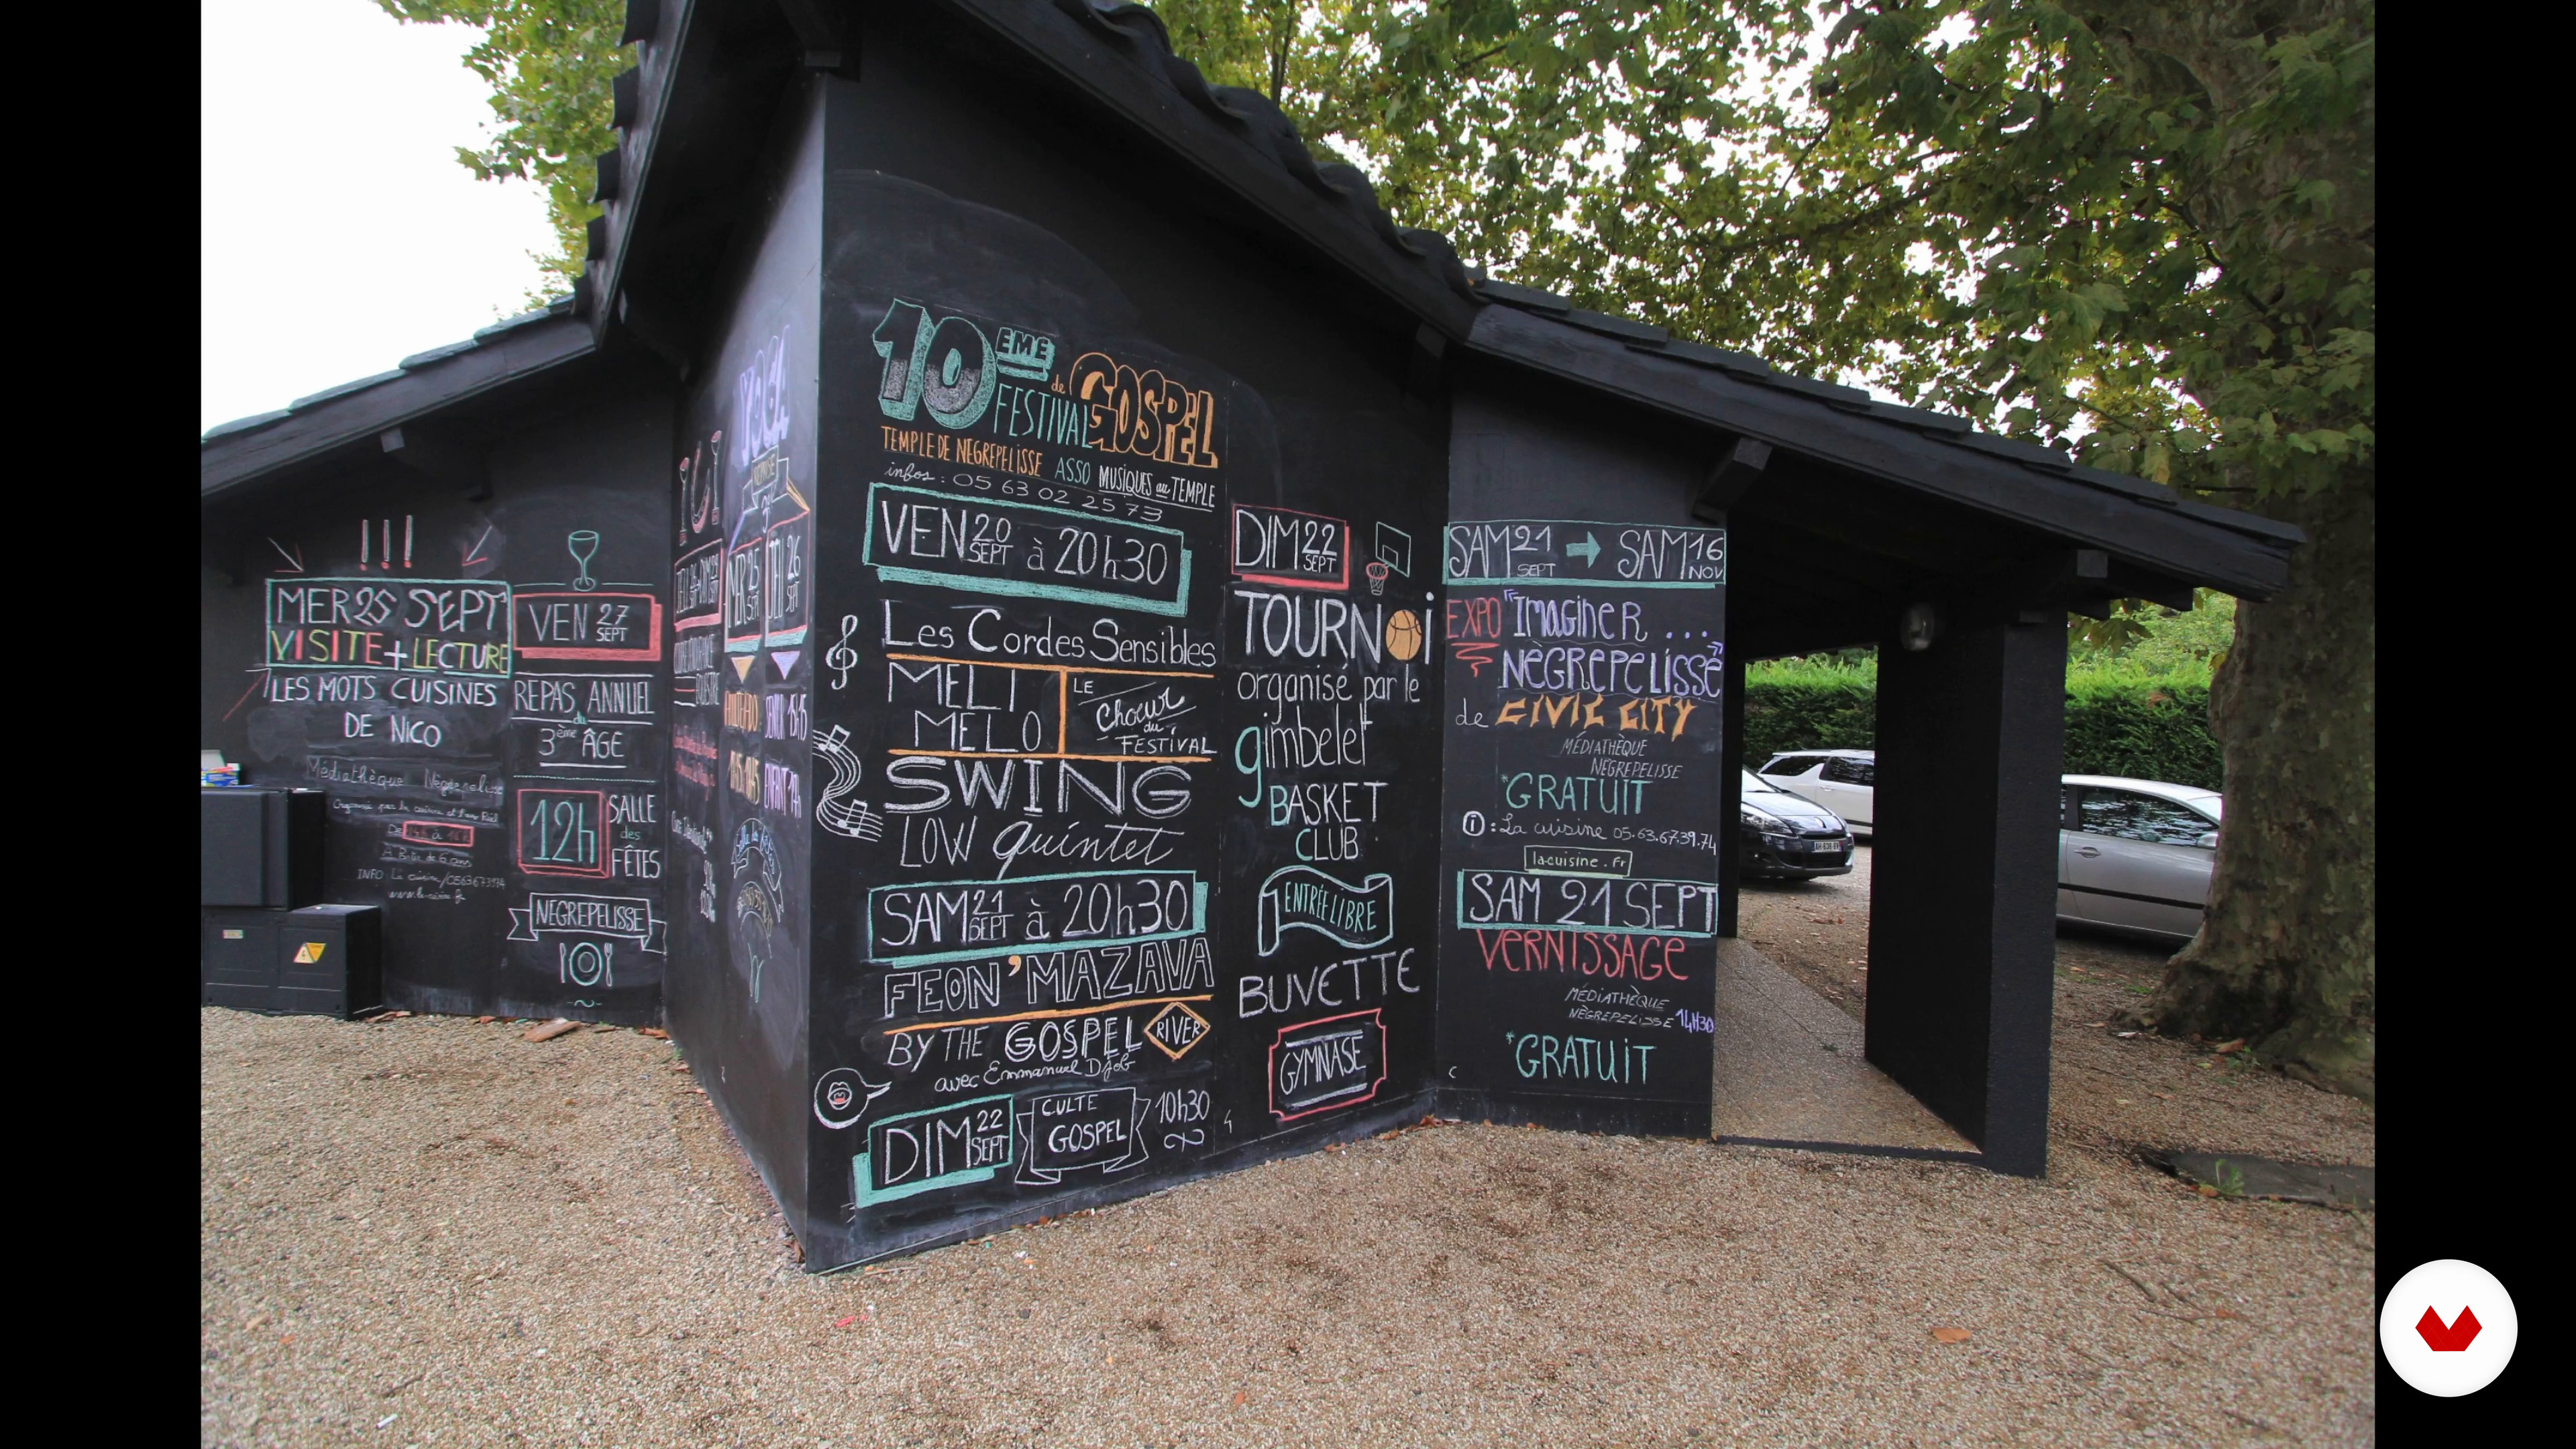 !!!
MER 25 SEPT
VISITE + LECTURE
LES MOTS CUISINES
DE NICO
Médiathèque Nègrepelisse
De 14h à 16h
À Partir de 6 ans
INFO La cuisine/0563673974
www.la-cuisine.fr
VEN 27 SEPT
REPAS ANNUEL
du
3ème ÂGE
12h
SALLE
des
FÊTES
NEGREPELISSE
YOGA
REPRISE
MER 25 SEPT
JEU 26 SEPT
10EME
FESTIVAL de GOSPEL
TEMPLE DE NEGREPELISSE ASSO MUSIQUES au TEMPLE
infos : 05 63 02 25 73
VEN 20 SEPT à 20h30
Les Cordes Sensibles
MELI
MELO
LE
Choeur
du
FESTIVAL
SWING
LOW quintet
SAM 21 SEPT à 20h30
FEON'MAZAVA
BY THE GOSPEL RIVER
avec Emmanuel Djob
DIM 22 SEPT
CULTE
GOSPEL
10h30
4
DIM 22 SEPT
TOURNOi
organisé par le
gimbelet
BASKET
CLUB
ENTRÉE LIBRE
BUVETTE
GYMNASE
SAM 21 SEPT → SAM 16 NOV
EXPO "Imagine R ...
NÈGREPELISSE"
de CIVIC CITY
MÉDIATHÈQUE
NÈGREPELISSE
*GRATUIT
i : La cuisine 05.63.67.39.74
la-cuisine.fr
SAM 21 SEPT
VERNISSAGE
MÉDIATHÈQUE
NÈGREPELISSE 14H30
*GRATUIT